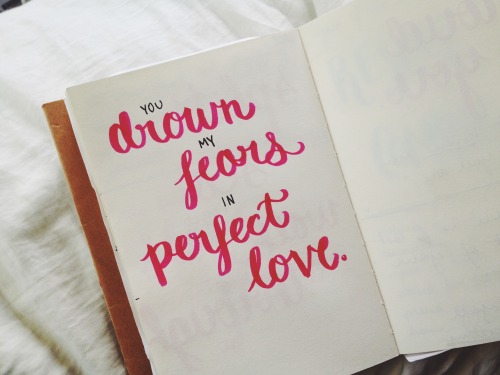 YOU
drown
MY
fears
IN
perfect
love.